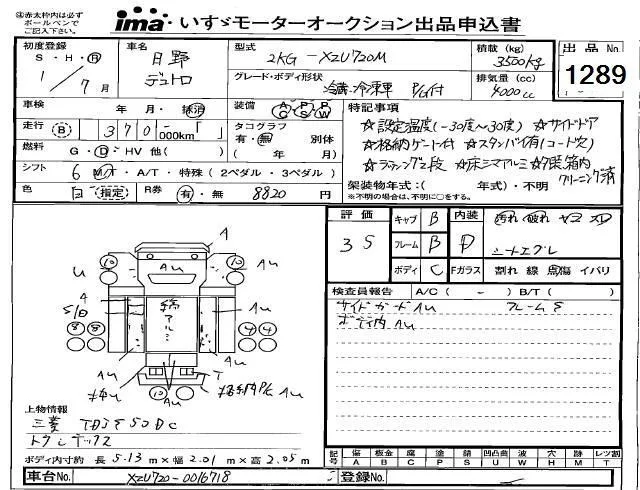 ㊟赤太枠内は必ず
ボールペンで
ご記入下さい。
ima いすゞモーターオークション出品申込書
初度登録 S・H・R 1/7月
車名 日野 デュトロ
型式 2KG-XZU720M
グレード・ボディ形状 冷凍車 P/G付
積載 (kg) 3500kg
排気量 (cc) 4000cc
出品 No. 1289
車検 年 月・抹消
装備 A/C P/S P/W
走行 (B) 370 000km
タコグラフ 有・無 別体 (年 月)
燃料 G・D・HV 他( )
シフト 6 M/T・A/T・特殊(2ペダル・3ペダル)
色 白(指定)
R券 有・無 8820円
特記事項
☆設定温度(-30度~30度) ☆サイドドア
☆格納ゲート付 ☆スタンバイ有(コード欠)
☆ラッシング2段 ☆床シマアルミ ☆荷箱内クリーニング済
架装物年式:( 年式)・不明
※不明の場合は、不明に○をする。
評価 3S
キャブ B
フレーム B
ボディ C
内装 D
Fガラス
汚れ 破れ ヤニ スレ
シートエグレ
割れ 線 点傷 イバリ
検査員報告 A/C( - ) B/T( )
サイドガードAu フレームS
ボディ内Au
A
10 Au 10
U AU
A
S/D
8 8
Au
4 4
Au
T
10
Au
Au
上物情報
三菱 TDJS50DC
トプレテックス
ボディ内寸約 長 5.13 m×幅 2.01 m×高 2.05 m
記号 傷 A 板金 B 腐 C 塗 P 錆 S 凹凸曲 U 波 W 穴 H 跡 M レツ割 T
車台No. XZU720-0016718
登録No.